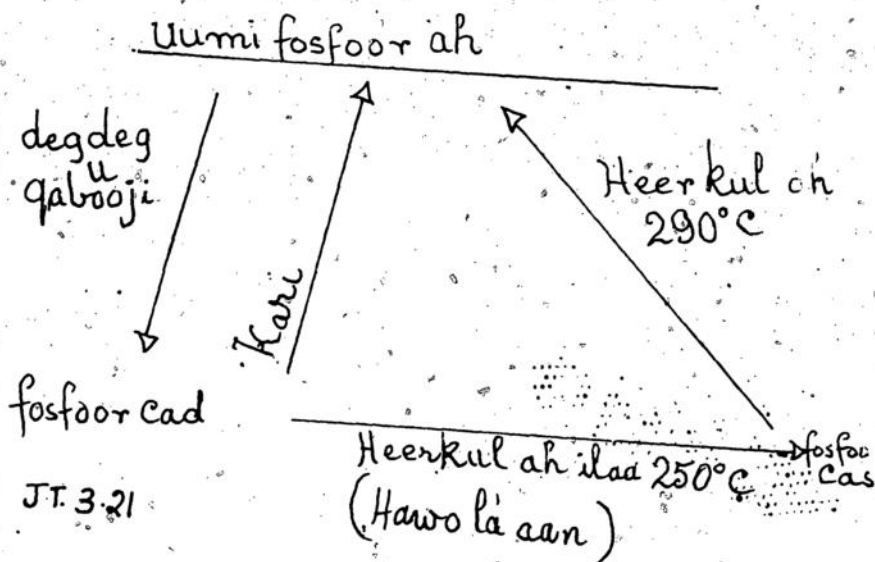 Uumi fosfoor ah
degdeg
u
qabooji
Kari
Heerkul ah
290°C
fosfoor cad
Heerkul ah ilaa 250°C
(Hawo la'aan)
fosfoo
cas
JT. 3.21